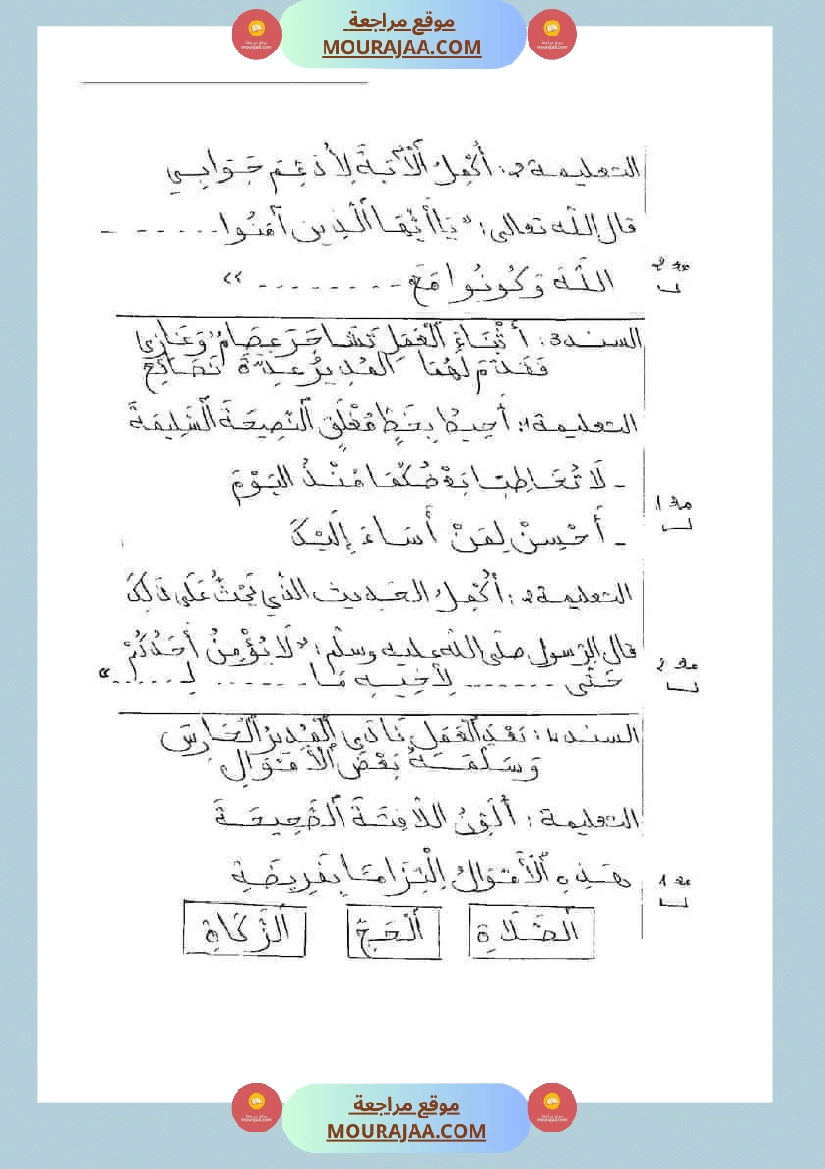 موقع مراجعة
MOURAJAA.COM
التعليمة 2: أُكْمِلُ الْآيَةَ لِأُدَعِّمَ جَوَابِي
قال الله تعالى: " يَا أَيُّهَا الَّذِينَ آمَنُوا . . . . . .
اللَّهَ وَكُونُوا مَعَ . . . . . . . . "
مع 2
السند 3: أَثْنَاءَ الْعَمَلِ تَشَاجَرَ عِصَامُ وَغَازِي
فَقَدَّمَ لَهُمَا المُدِيرُ عِدَّةَ نَصَائِحَ
التعليمة 1: أُحِيطُ بِخَطٍّ مُغْلَقٍ النَّصِيحَةَ السَّلِيمَةَ
- لَا تُخَاطِبَا بَعْضُكُمَا مُنْذُ اليَوْمَ
- أَحْسِنْ لِمَنْ أَسَاءَ إِلَيْكَ
مع 1
التعليمة 2: أُكْمِلُ الحَدِيث الذِي يَحُثُّ عَلَى ذَالِكَ
قال الرّسول صلّى الله عليه وسلّم: " لَا يُؤْمِنُ أَحَدُكُمْ
حَتَّى ........ لِأَخِيهِ مَا ........ لِـ ...... "
مع 2
السند 4: بَعْدَ العَمَلِ نَادَى الْمُدِيرُ الْحَارِسَ
وَسَلَّمَهُ بَعْضَ الْأَمْوَالِ
التعليمة: أُلَوِّنُ اللَّافِتَةَ الصَّحِيحَةَ
هَذِهِ الْأَمْوَالُ الْتِزَامًا بِفَرِيضَةِ
مع 1
الصَّلَاةِ
الْحَجِّ
الزَّكَاةِ
موقع مراجعة
MOURAJAA.COM